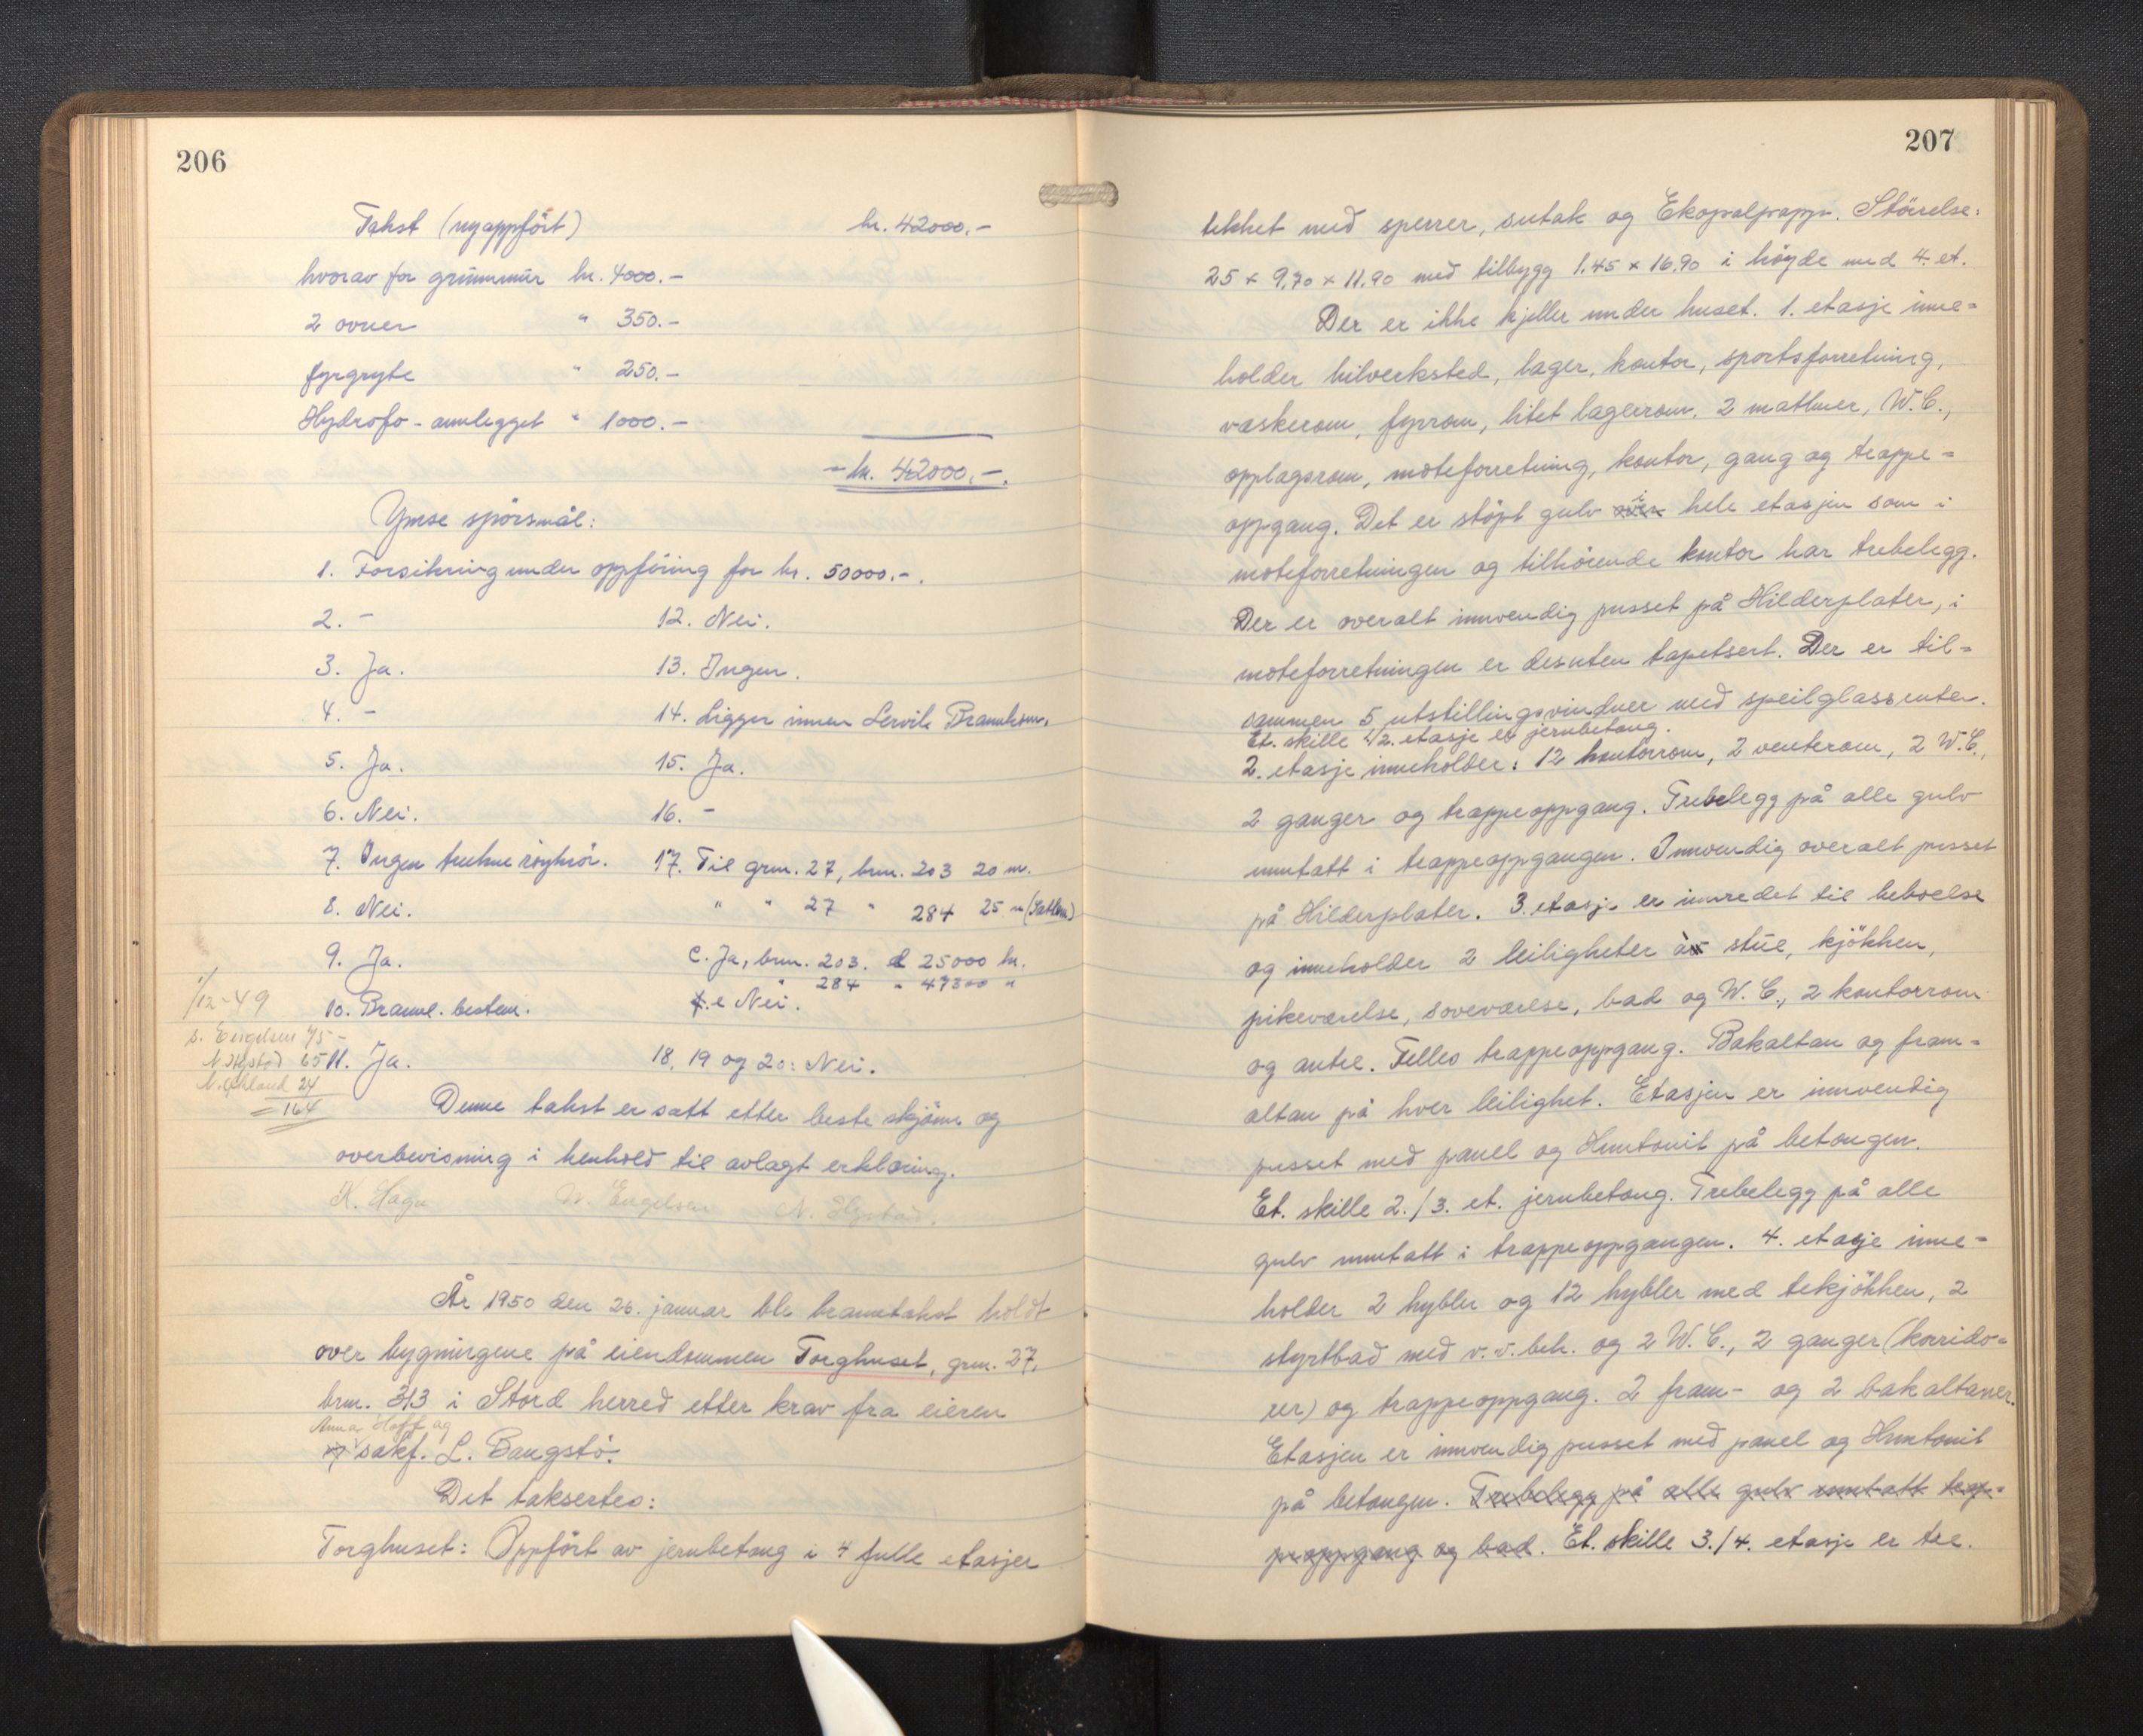 206
Takst (nyoppført) kr. 42000.-
hvorav for grunnmur kr. 4000.-
2 ovner " 350.-
fyrgryte " 250.-
Hydrofo-annlegget " 1000.-
- kr. 42000.-.
Ymse spörsmål:
1. Forsikring under oppföring for kr. 50000.-.
2. - 12. Nei.
3. Ja. 13. Ingen.
4. - 14. Ligger innen Lervik Brannkom.
5. Ja. 15. Ja.
6. Nei. 16. -
7. Ingen trekne röykrör. 17. Til grn. 27, brn. 203 20 m.
8. Nei. " " 27 " 284 25 m
9. Ja. c. Ja, brn. 203. d 25000 kr.
" 284 " 47300 "
1/12-49
10. Brannl. bestem. e Nei.
S. Engelsen 75-
N. Hystad 65
11. Ja. 18, 19 og 20: Nei.
N. 24
= 164
Denne takst er satt etter beste skjönn og
overbevisning i henhold til avlagt erklæring.
K. Haga Engelsen N. Hystad.
År 1950 den 26. januar ble branntakst holdt
over bygningene på eiendommen Torghuset, grn. 27,
brn. 313 i Stord herred etter krav fra eieren
Anna Hoff og
sakf. L. Bangstö.
Det taksertes:
Torghuset: Oppfört av jernbetong i 4 fulle etasjer
207
tekket med sperrer, sutak og Ekopalpapp. Störrelse:
25 x 9,70 x 11,90 med tilbygg 1.45 x 16.90 i höyde med 4. et.
Der er ikke kjeller under huset. 1. etasje inne=
holder bilverksted, lager, kontor, sportsforretning,
vaskerom, fyrrom, litet lagerrom. 2 matbuer, W.C.,
opplagsrom, moteforretning, kontor, gang og trappe=
oppgang. Det er stöpt gulv over i hele etasjen som i
moteforretningen og tilhörende kontor har trebelegg.
Der er overalt innvendig pusset på Hilderplater, i
moteforretningen er desuten tapetsert. Der er til=
sammen 5 utstillingsvinduer med speilglassruter.
Et. skille 1/2. etasje er jernbetong.
2. etasje inneholder: 12 kontorrom, 2 venterom, 2 W.C.,
2 ganger og trappeoppgang. Trebelegg på alle gulv
unntatt i trappeoppgangen. Innvendig overalt pusset
på Hilderplater. 3. etasje er innredet til beboelse
og inneholder 2 leiligheter à stue, kjökken,
pikeværelse, soveværelse, bad og W.C., 2 kontorrom
og entre. Felles trappeoppgang. Bakaltan og fram=
altan på hver leilighet. Etasjen er innvendig
pusset med panel og Huntonit på betongen.
Et. skille 2./3. et. jernbetong. Trebelegg på alle
gulv unntatt i trappeoppgangen. 4. etasje inne=
holder 2 hybler og 12 hybler med tekjökken, 2
styrtbad med v.v. beh. og 2 W.C., 2 ganger (korrido=
rer) og trappeoppgang. 2 fram- og 2 bakaltaner.
Etasjen er innvendig pusset med panel og Huntonit
på betongen. Trebelegg på alle gulv unntatt trap=
peoppgang og bad. Et. skille 3./4. etasje er tre.